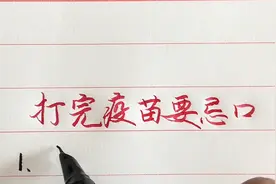 打完疫苗要忌口
1、